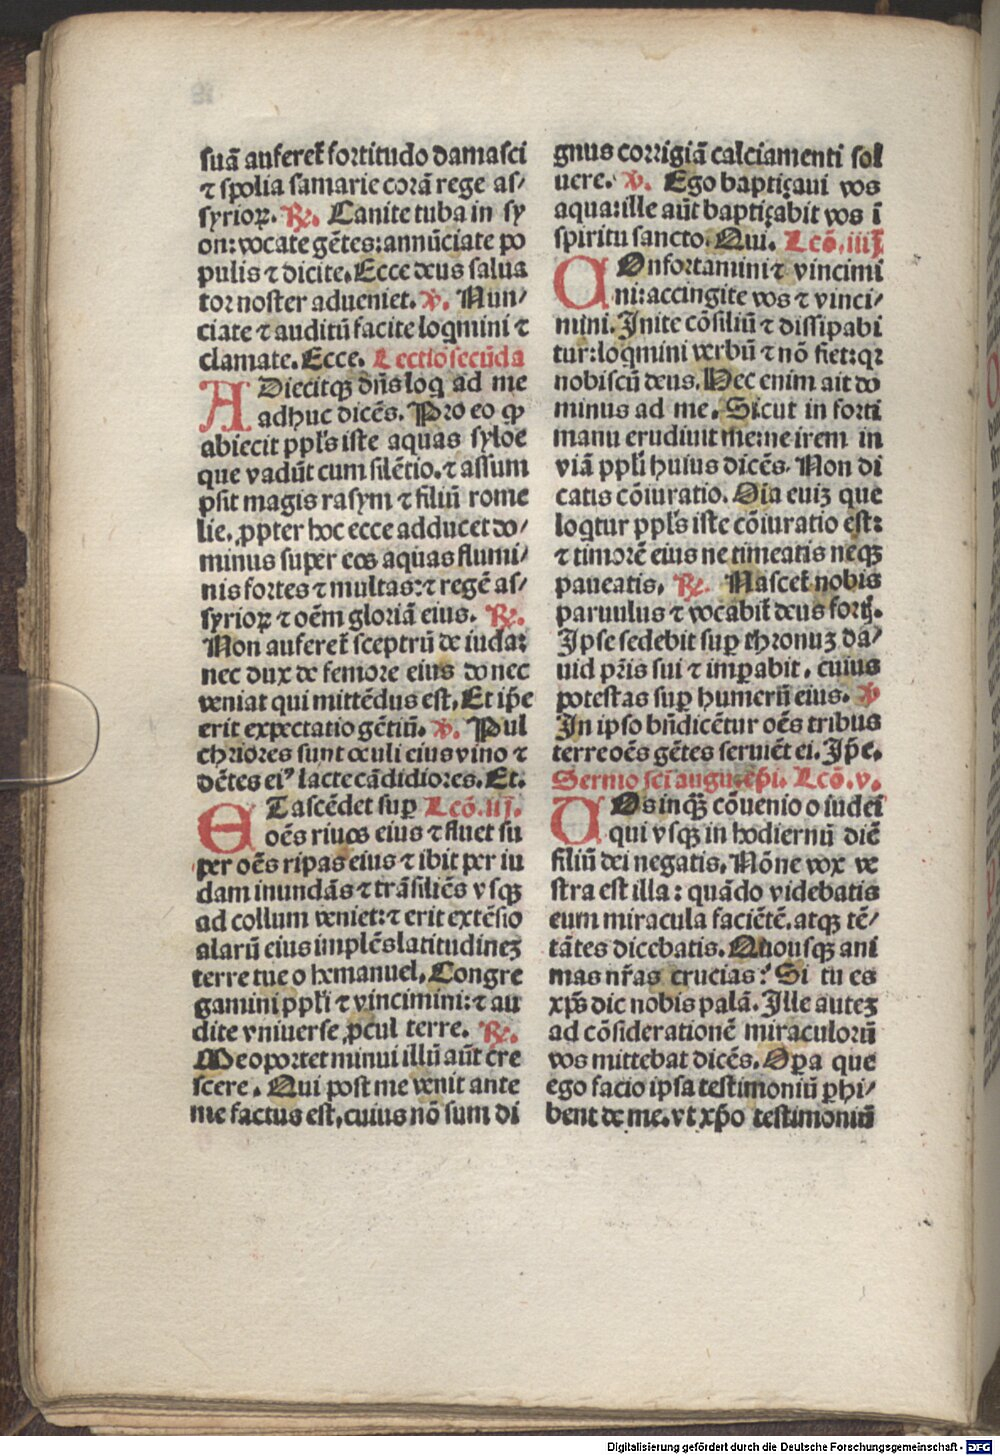 suā auferet᷑ fortitudo damasci
⁊ spolia samarie corā rege as/
syrioꝝ. ℟. Canite tuba in sy
on: vocate gētes: annūciate po
pulis ⁊ dicite. Ecce deus salua
tor noster adueniet. ℣. Nun/
ciate ⁊ auditū facite loqmini ⁊
clamate. Ecce. Lectio secūda
ADiecitqꝫ dn̄s loq ad me
adhuc dicēs. Pro eo ꝙ
abiecit ppl̄s iste aquas syloe
que vadūt cum silētio. ⁊ assum
psit magis rasym ⁊ filiū rome
lie. ꝓpter hoc ecce adducet do/
minus super eos aquas flumi/
nis fortes ⁊ multas: ⁊ regē as/
syrioꝝ ⁊ oēm gloriā eius. ℟.
Non auferet᷑ sceptrū de iuda:
nec dux de femore eius donec
veniat qui mittēdus est. Et ip̄e
erit expectatio gētiū. ℣. Pul
chriores sunt oculi eius vino ⁊
dētes eiꝰ lacte cādidiores. Et.
ETascēdet suꝑ Lcō. iij.
oēs riuos eius ⁊ fluet su
per oēs ripas eius ⁊ ibit per iu
dam inundās ⁊ trāsiliēs vsqꝫ
ad collum veniet: ⁊ erit extēsio
alarū eius implēs latitudineꝫ
terre tue o hemanuel. Congre
gamini ppl̄i ⁊ vincimini: ⁊ au
dite vniuerse ꝓcul terre. ℟.
Me oportet minui illū aūt cre
scere. Qui post me venit ante
me factus est, cuius nō sum di
gnus corrigiā calciamenti sol
uere. ℣. Ego baptiçaui vos
aqua: ille aūt baptiçabit vos ī
spiritu sancto. Qui. Lcō. iiij
COnfortamini ⁊ vincimi
ni: accingite vos ⁊ vinci/
mini. Inite cōsiliū ⁊ dissipabi
tur: loqmini verbū ⁊ nō fiet: qꝛ
nobiscū deus. Hec enim ait do
minus ad me. Sicut in forti
manu erudiuit me: ne irem in
viā ppl̄i huius dicēs. Non di
catis cōiuratio. Oīa eniꝫ que
loqtur ppl̄s iste cōiuratio est:
⁊ timorē eius ne timeatis neqꝫ
paueatis. ℟. Nascet᷑ nobis
paruulus ⁊ vocabit᷑ deus fortꝭ.
Ipse sedebit suꝑ thronuꝫ da/
uid pr̄is sui ⁊ imꝑabit, cuius
potestas suꝑ humerū eius. ℣
In ipso bn̄dicētur oēs tribus
terre oēs gētes seruiēt ei. Ip̄e.
Sermo sci augu. ep̄i. Lcō. v.
VOs inqꝫ cōuenio o iudei
qui vsqꝫ in hodiernū diē
filiū dei negatis. Nōne vox ve
stra est illa: quādo videbatis
eum miracula faciētē. atqꝫ tē/
tātes dicebatis. Quousqꝫ ani
mas nr̄as crucias? Si tu es
xp̄s dic nobis palā. Ille auteꝫ
ad cōsiderationē miraculorū
vos mittebat dicēs. Oꝑa que
ego facio ipsa testimoniū ꝑhi/
bent de me. vt xp̄o testimoniū
Digitalisierung gefördert durch die Deutsche Forschungsgemeinschaft - DFG